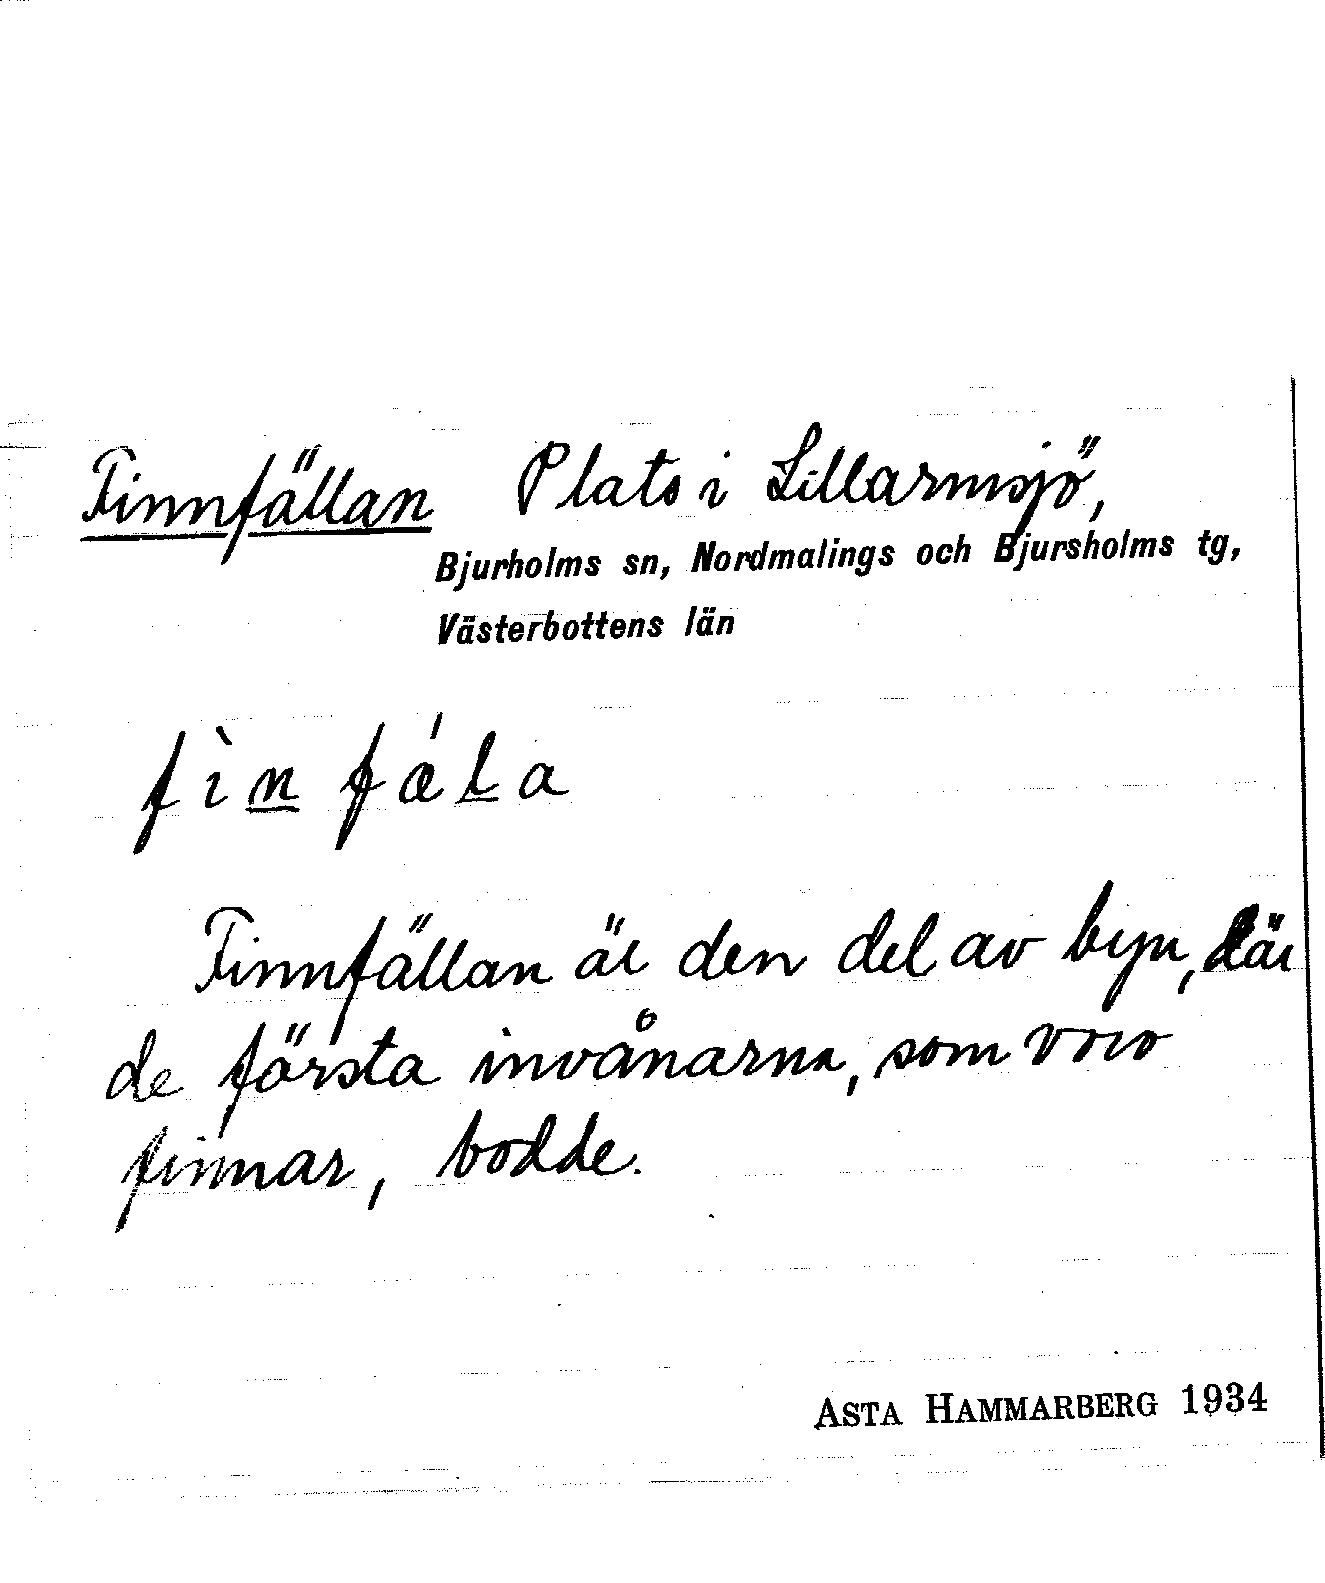 Finnfällan Plats i Lillarmsjö,
Bjurholms sn, Nordmalings och Bjursholms tg,
Västerbottens län
fìn fǽla
Finnfällan är den del av byn, där
de första invånarna, som voro
finnar, bodde.
ASTA HAMMARBERG 1934